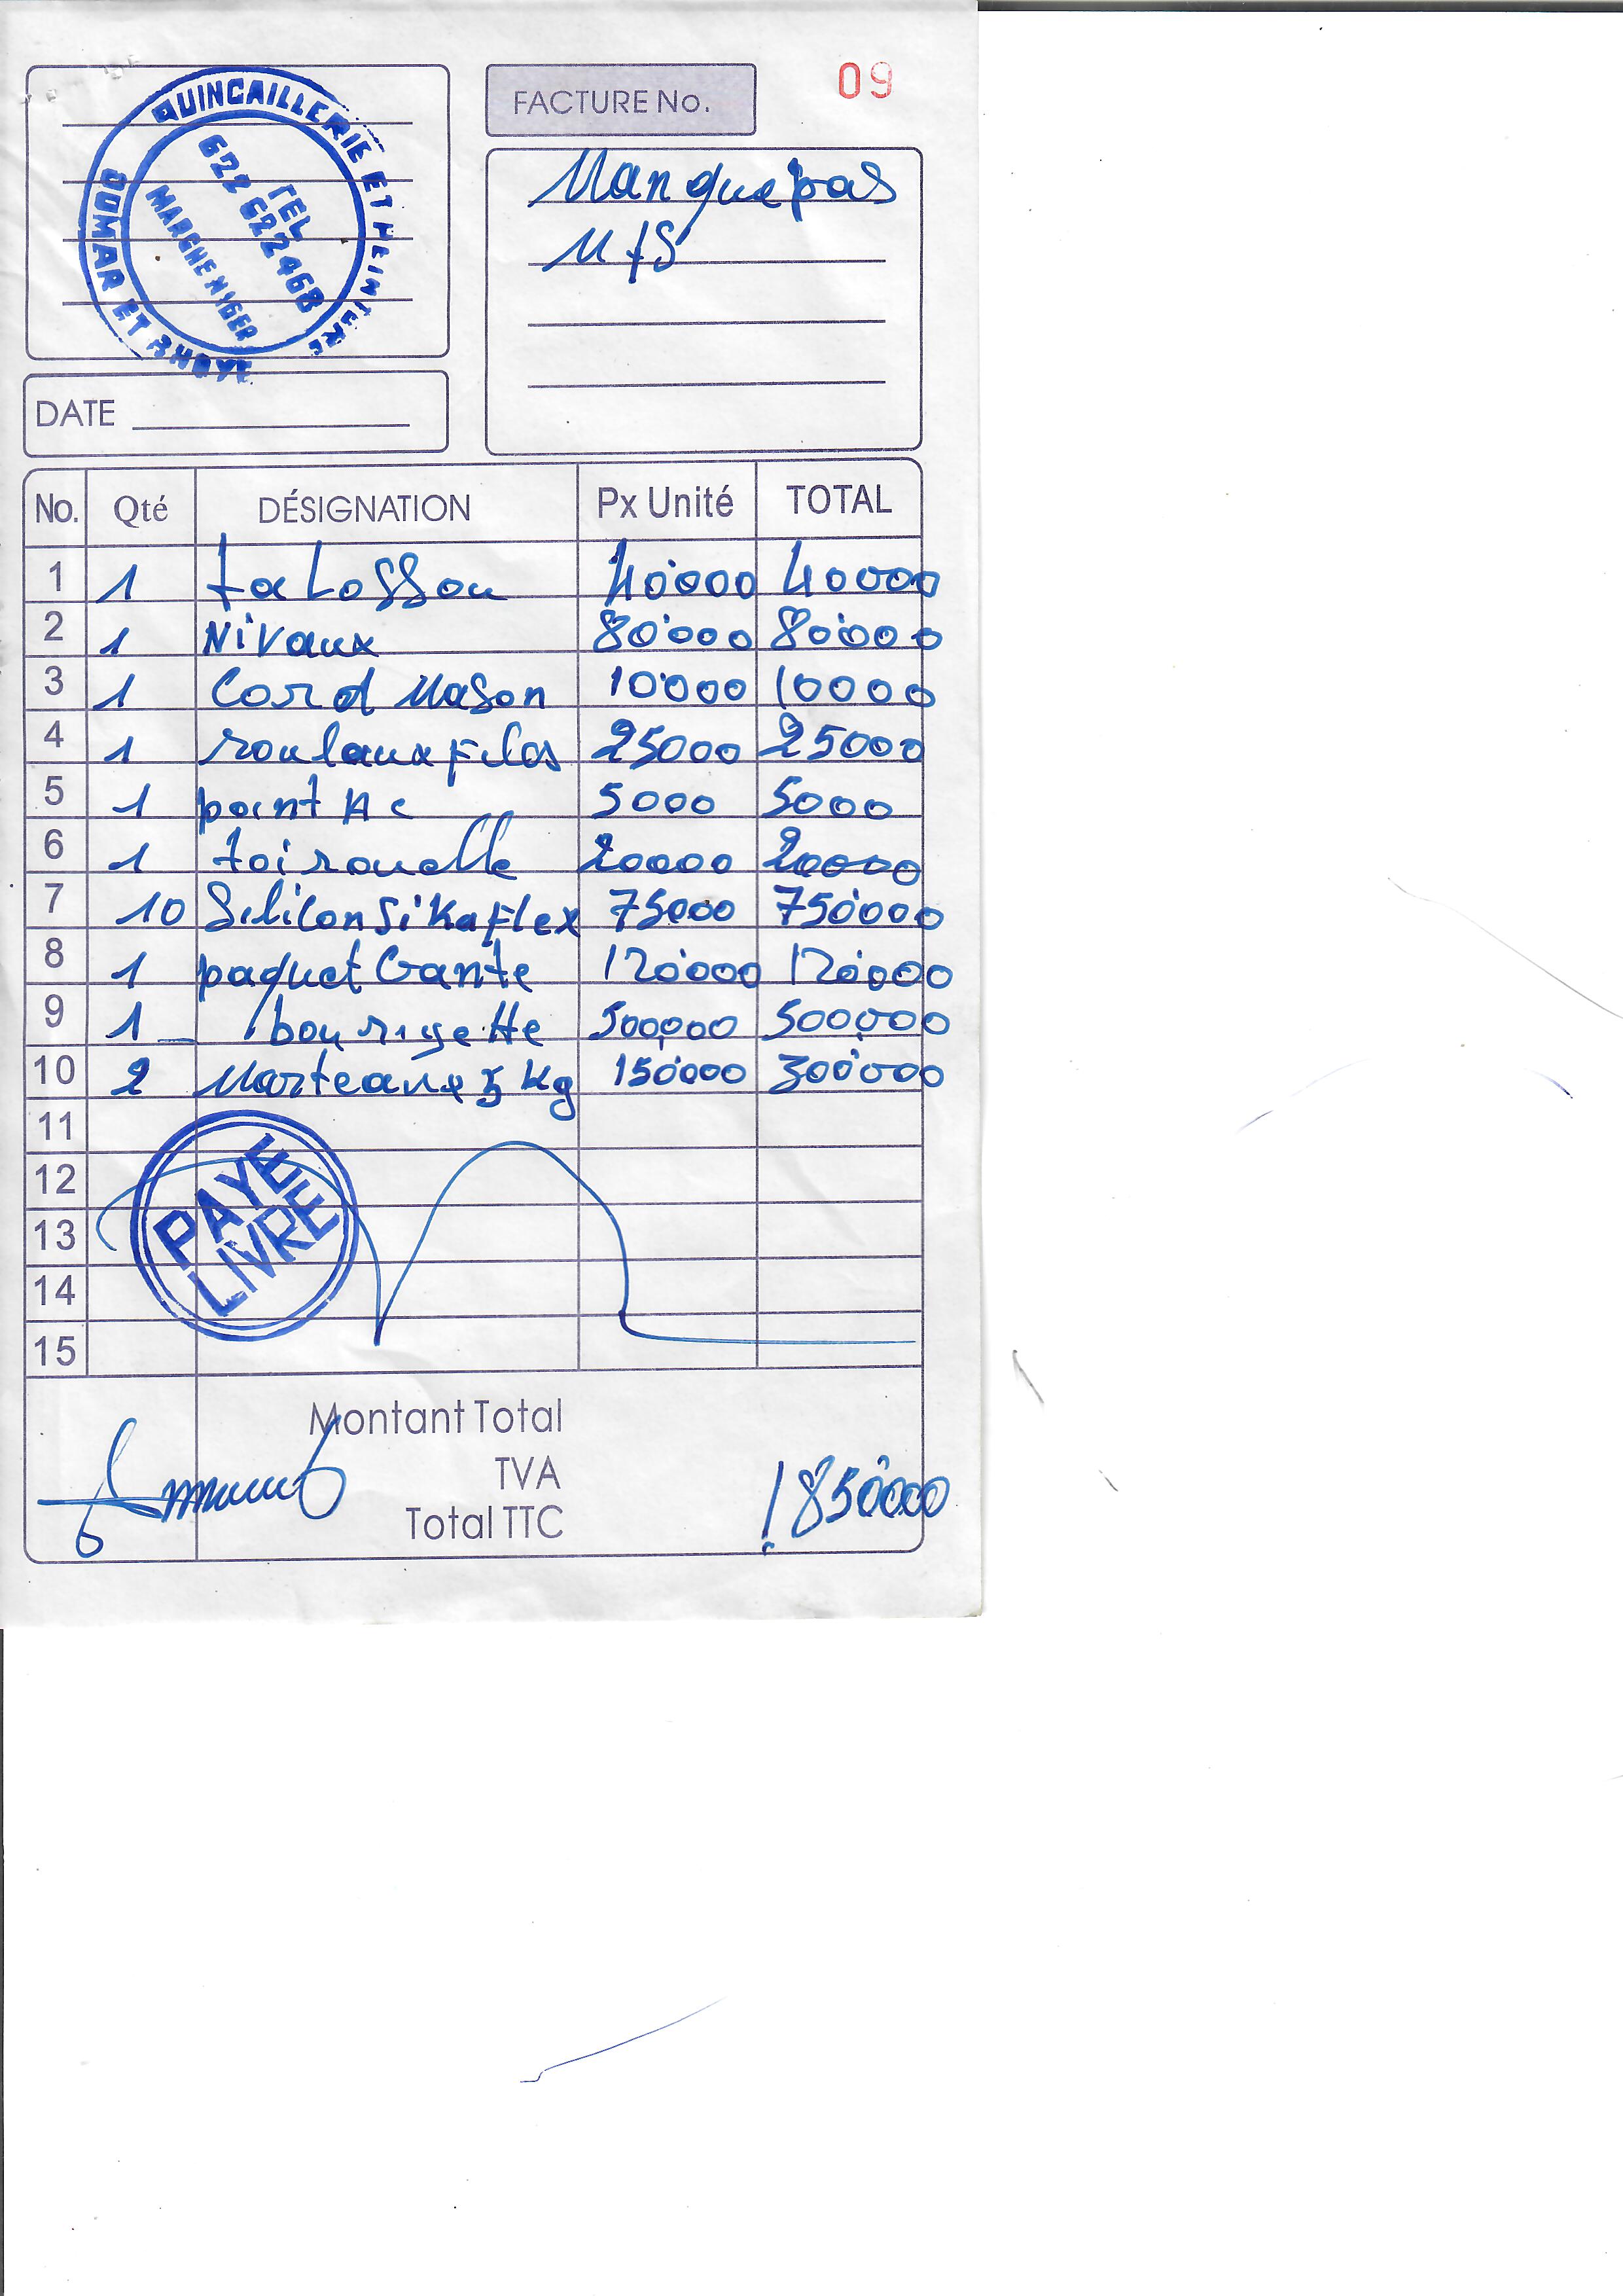 QUINCAILLERIE ET PEINTURE
OUMAR ET RHOYE
TEL
622 622 468
MARCHE NIGER
FACTURE No. 09
Manquepas
M/S
DATE
No. Qté DÉSIGNATION Px Unité TOTAL
1 1 taLoSSou 40'000 40000
2 1 Nivaux 80'000 80'000
3 1 Cord Mason 10'000 10000
4 1 roulaux Filas 25000 25000
5 1 point Ac 5000 5000
6 1 toirouelle 20000 20000
7 10 Silicon Sikaflex 75000 750'000
8 1 paquet Gante 120'000 120'000
9 1 bourigette 500,000 500,000
10 2 Marteaux 5 kg 150'000 300'000
11
12
13
14
15
PAYE
LIVRE
Montant Total
TVA
Total TTC 1850'000